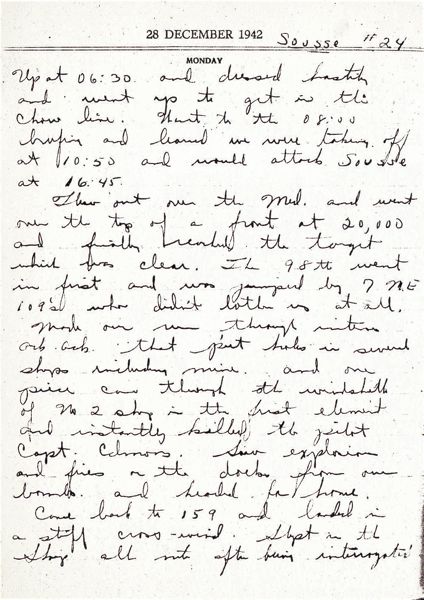 28 DECEMBER 1942 Sousse #24
MONDAY
Up at 06:30 and dressed hastily
and went up to get in the
chow line. Went to the 08:00
briefing and learned we were taking off
at 10:50 and would attack Sousse
at 16:45.
Flew out over the Med. and went
over the top of a front at 20,000
and finally reached the target
which was clear. The 98th went
in first and was jumped by 7 ME
109's who didn't bother us at all.
Made our run through intense
ack-ack that put holes in several
ships including mine. and one
piece came through the windshield
of No 2 ship in the first element
and instantly killed the pilot
Capt. Saw explosion
and fires on the docks from our
bombs and headed for home.
Came back to 159 and landed in
a stiff cross-wind. Slept in the
ship all nite after being interrogated